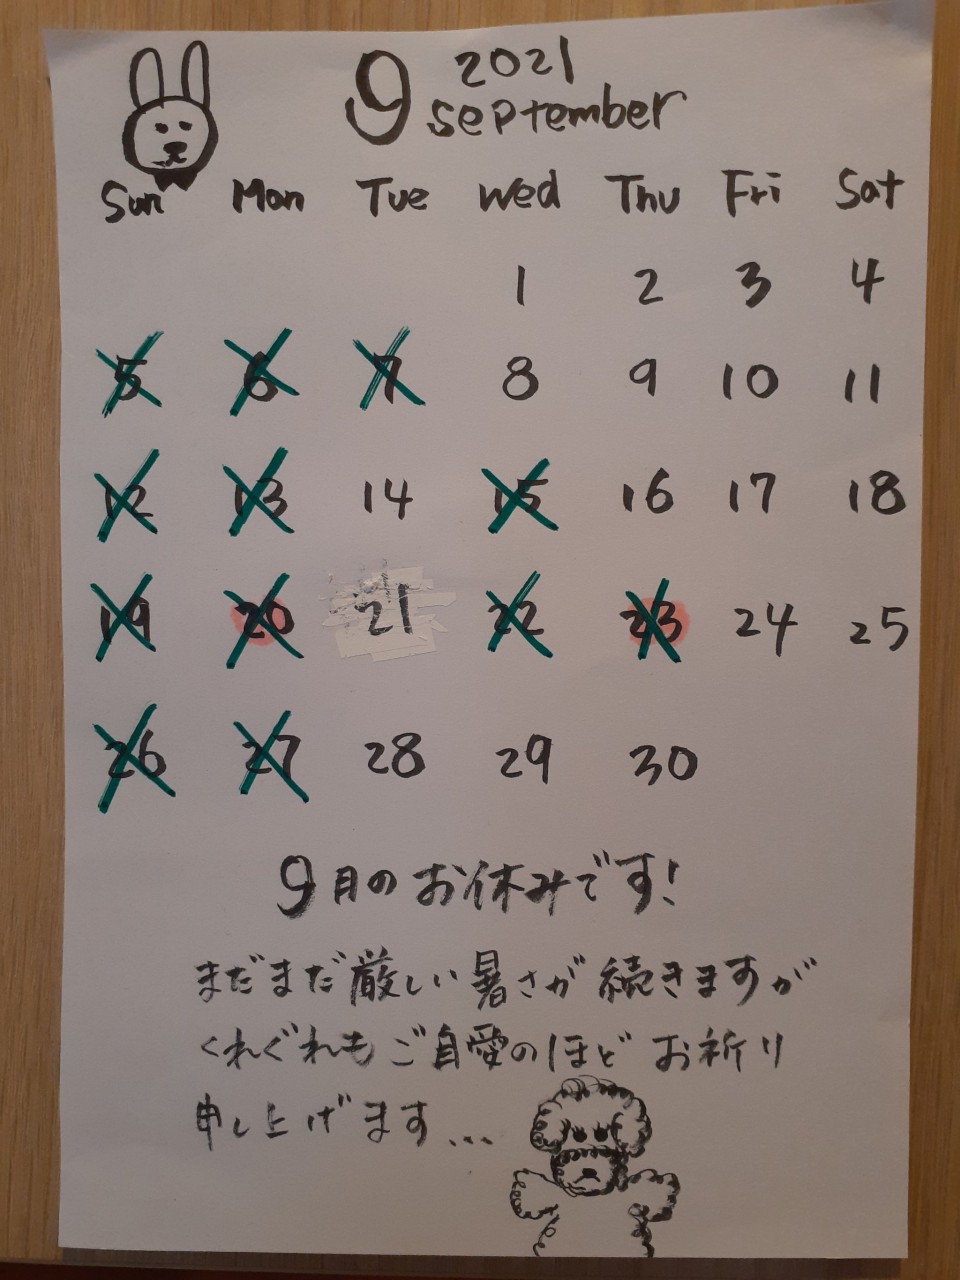 9 2021
September
Sun Mon Tue Wed Thu Fri Sat
1 2 3 4
5 6 7 8 9 10 11
12 13 14 15 16 17 18
19 20 21 22 23 24 25
26 27 28 29 30
9月のお休みです!
まだまだ厳しい暑さが続きますが
くれぐれもご自愛のほどお祈り
申し上げます...